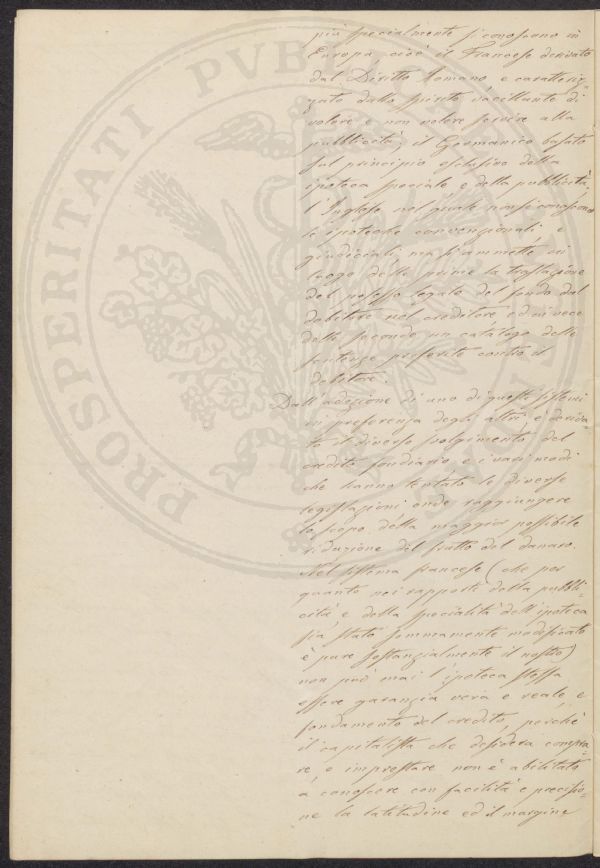 più specialmente si conoscono in
Europa, cioè il Francese derivato
dal Diritto Romano, e caratteriz-
zato dallo spirito vacillante di
volere e non volere servire alla
pubblicità; il Germanico basato
sul principio esclusivo della
ipoteca speciale e della pubblicità,
l'Inglese nel quale non si conoscono
le ipoteche convenzionali, e
giudiciali, ma si ammette in
luogo delle prime la traslazione
del possesso legato del fondo dal
debitore nel creditore ed in vece
delle seconde un catalogo delle
sentenze proferite contro il
debitore.
Dall'adozione di uno di questi sistemi
in preferenza degli altri è deriva-
to il diverso svolgimento del
credito fondiario e i vari modi
che hanno tentato le diverse
legislazioni onde raggiungere
lo scopo della maggior possibile
riduzione del frutto del danaro.
Nel sistema francese (che per
quanto nei rapporti della pubbli-
cità e della specialità dell'ipoteca
sia stato sommamente modificato
è pure sostanzialmente il nostro)
non può mai l'ipoteca stessa
essere garanzia vera e reale, e
fondamento del credito, perchè
il capitalista che desidera compra-
re, o imprestare non è abilitato
a conoscere con facilità e precisio-
ne la latitudine ed il margine
PROSPERITATI PVBLICAE